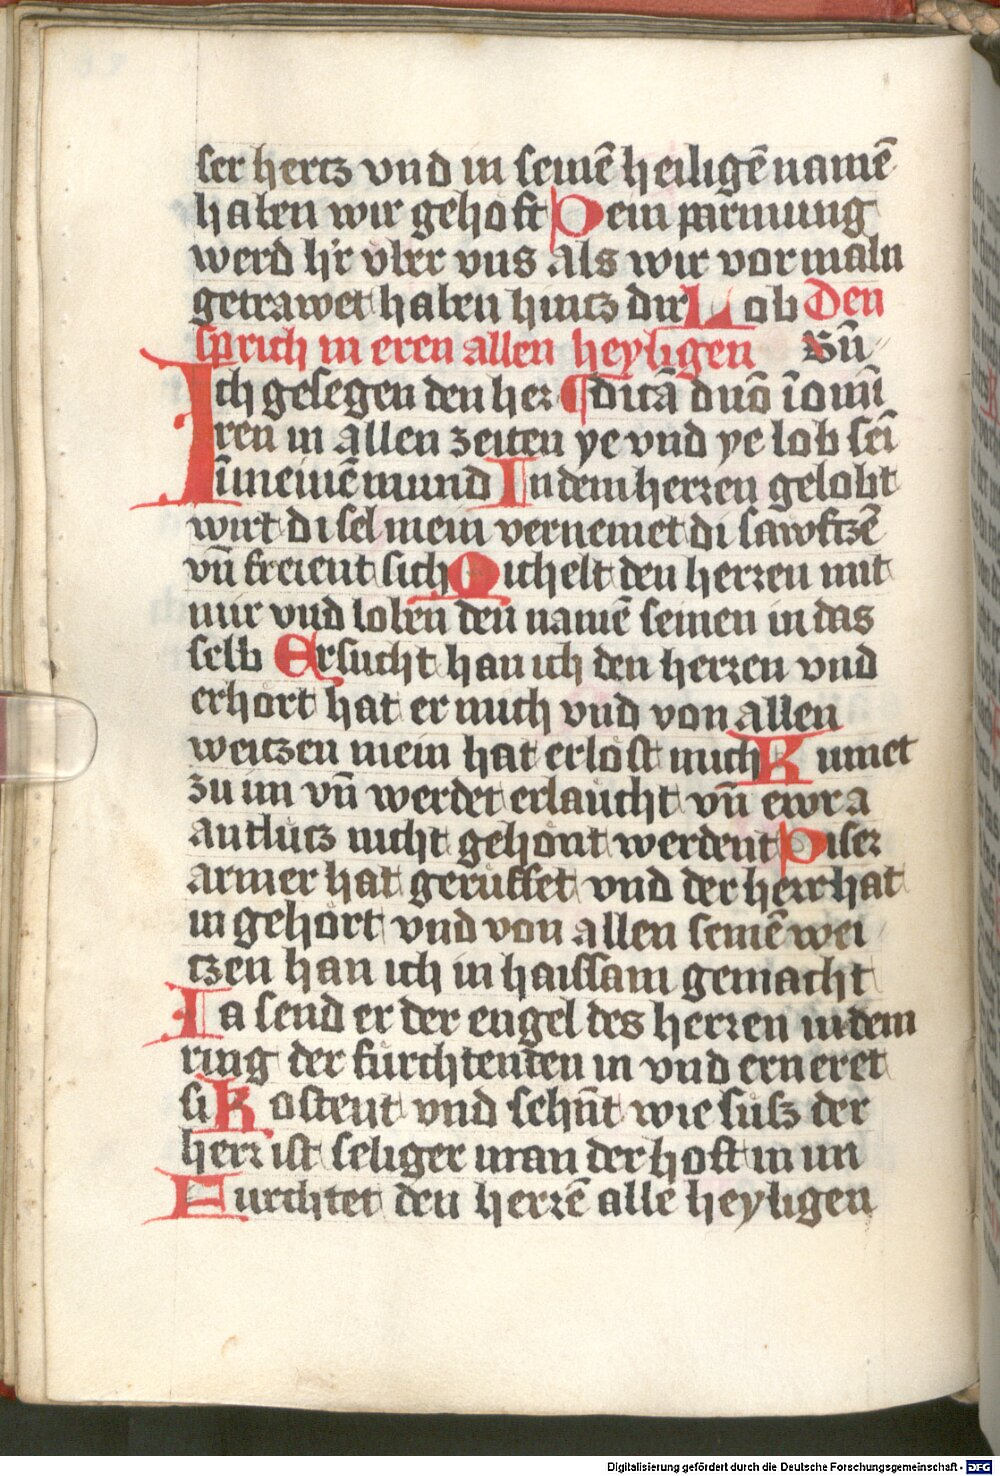 ser hertz vnd in seinē heiligē namē
haben wir gehoft Dein parmung
werd h'r vber vns als wir vormaln
getrawet haben hintz dir Lob Den
sprich in eren allen heyligen Bñ
Ich gesegen den her¶dicā dn̄o ī om̄i
ren in allen zeiten ye vnd ye lob sei
ī meinē mund In dem herren gelobt
wirt di sel mein vernemet di sawftzē
vn̄ freient sich Michelt den herren mit
mir vnd loben den namē seinen in das
selb Ersucht han ich den herren vnd
erhort hat er mich vnd von allen
weitzen mein hat erlost mich Kumet
zu im vn̄ werdet erlaucht vn̄ ewra
antlutz nicht gehont werdent Diser
armer hat geruffet vnd der herr hat
in gehort vnd von allen seinē wei
tzen han ich in haissam gemacht
In send er der engel des herren in dem
ring der furchtenten in vnd erneret
si Kostent vnd sehn̄t wie susz der
herr ist seliger man der hoft in im
Furchtet den herrē alle heyligen
Digitalisierung gefördert durch die Deutsche Forschungsgemeinschaft - DFG